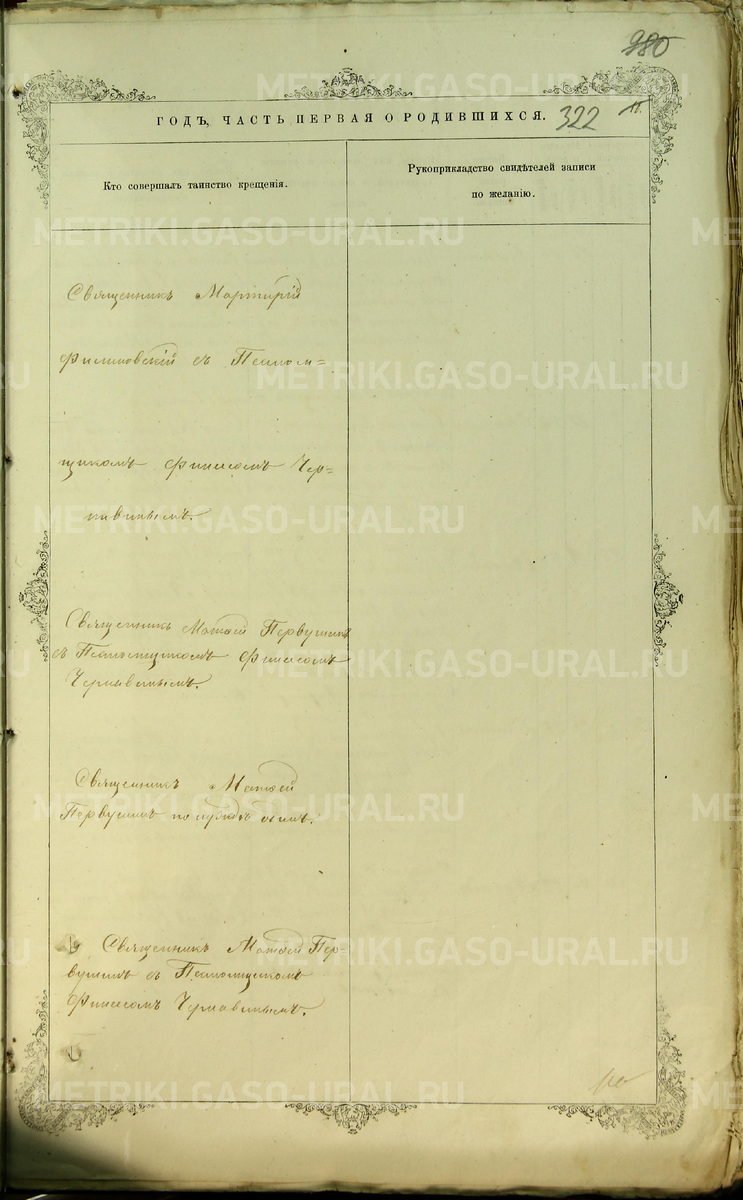 980
ГОДЪ, ЧАСТЬ ПЕРВАЯ О РОДИВШИХСЯ.
322
Кто совершалъ таинство крещенія.
Рукоприкладство свидѣтелей записи
по желанію.
Священникъ Мартирій
съ Псалом=
щикомъ Финеесомъ Чер=
Священникъ Матѳей Первушинъ
съ Псаломщикомъ Финеесомъ
Чернавинымъ.
Священникъ Матѳей
Первушинъ по нуждѣ одинъ.
Священникъ Матѳей Пер=
вушинъ съ Псаломщикомъ
Финеесомъ Чернавинымъ.
METRIKI.GASO-URAL.RU